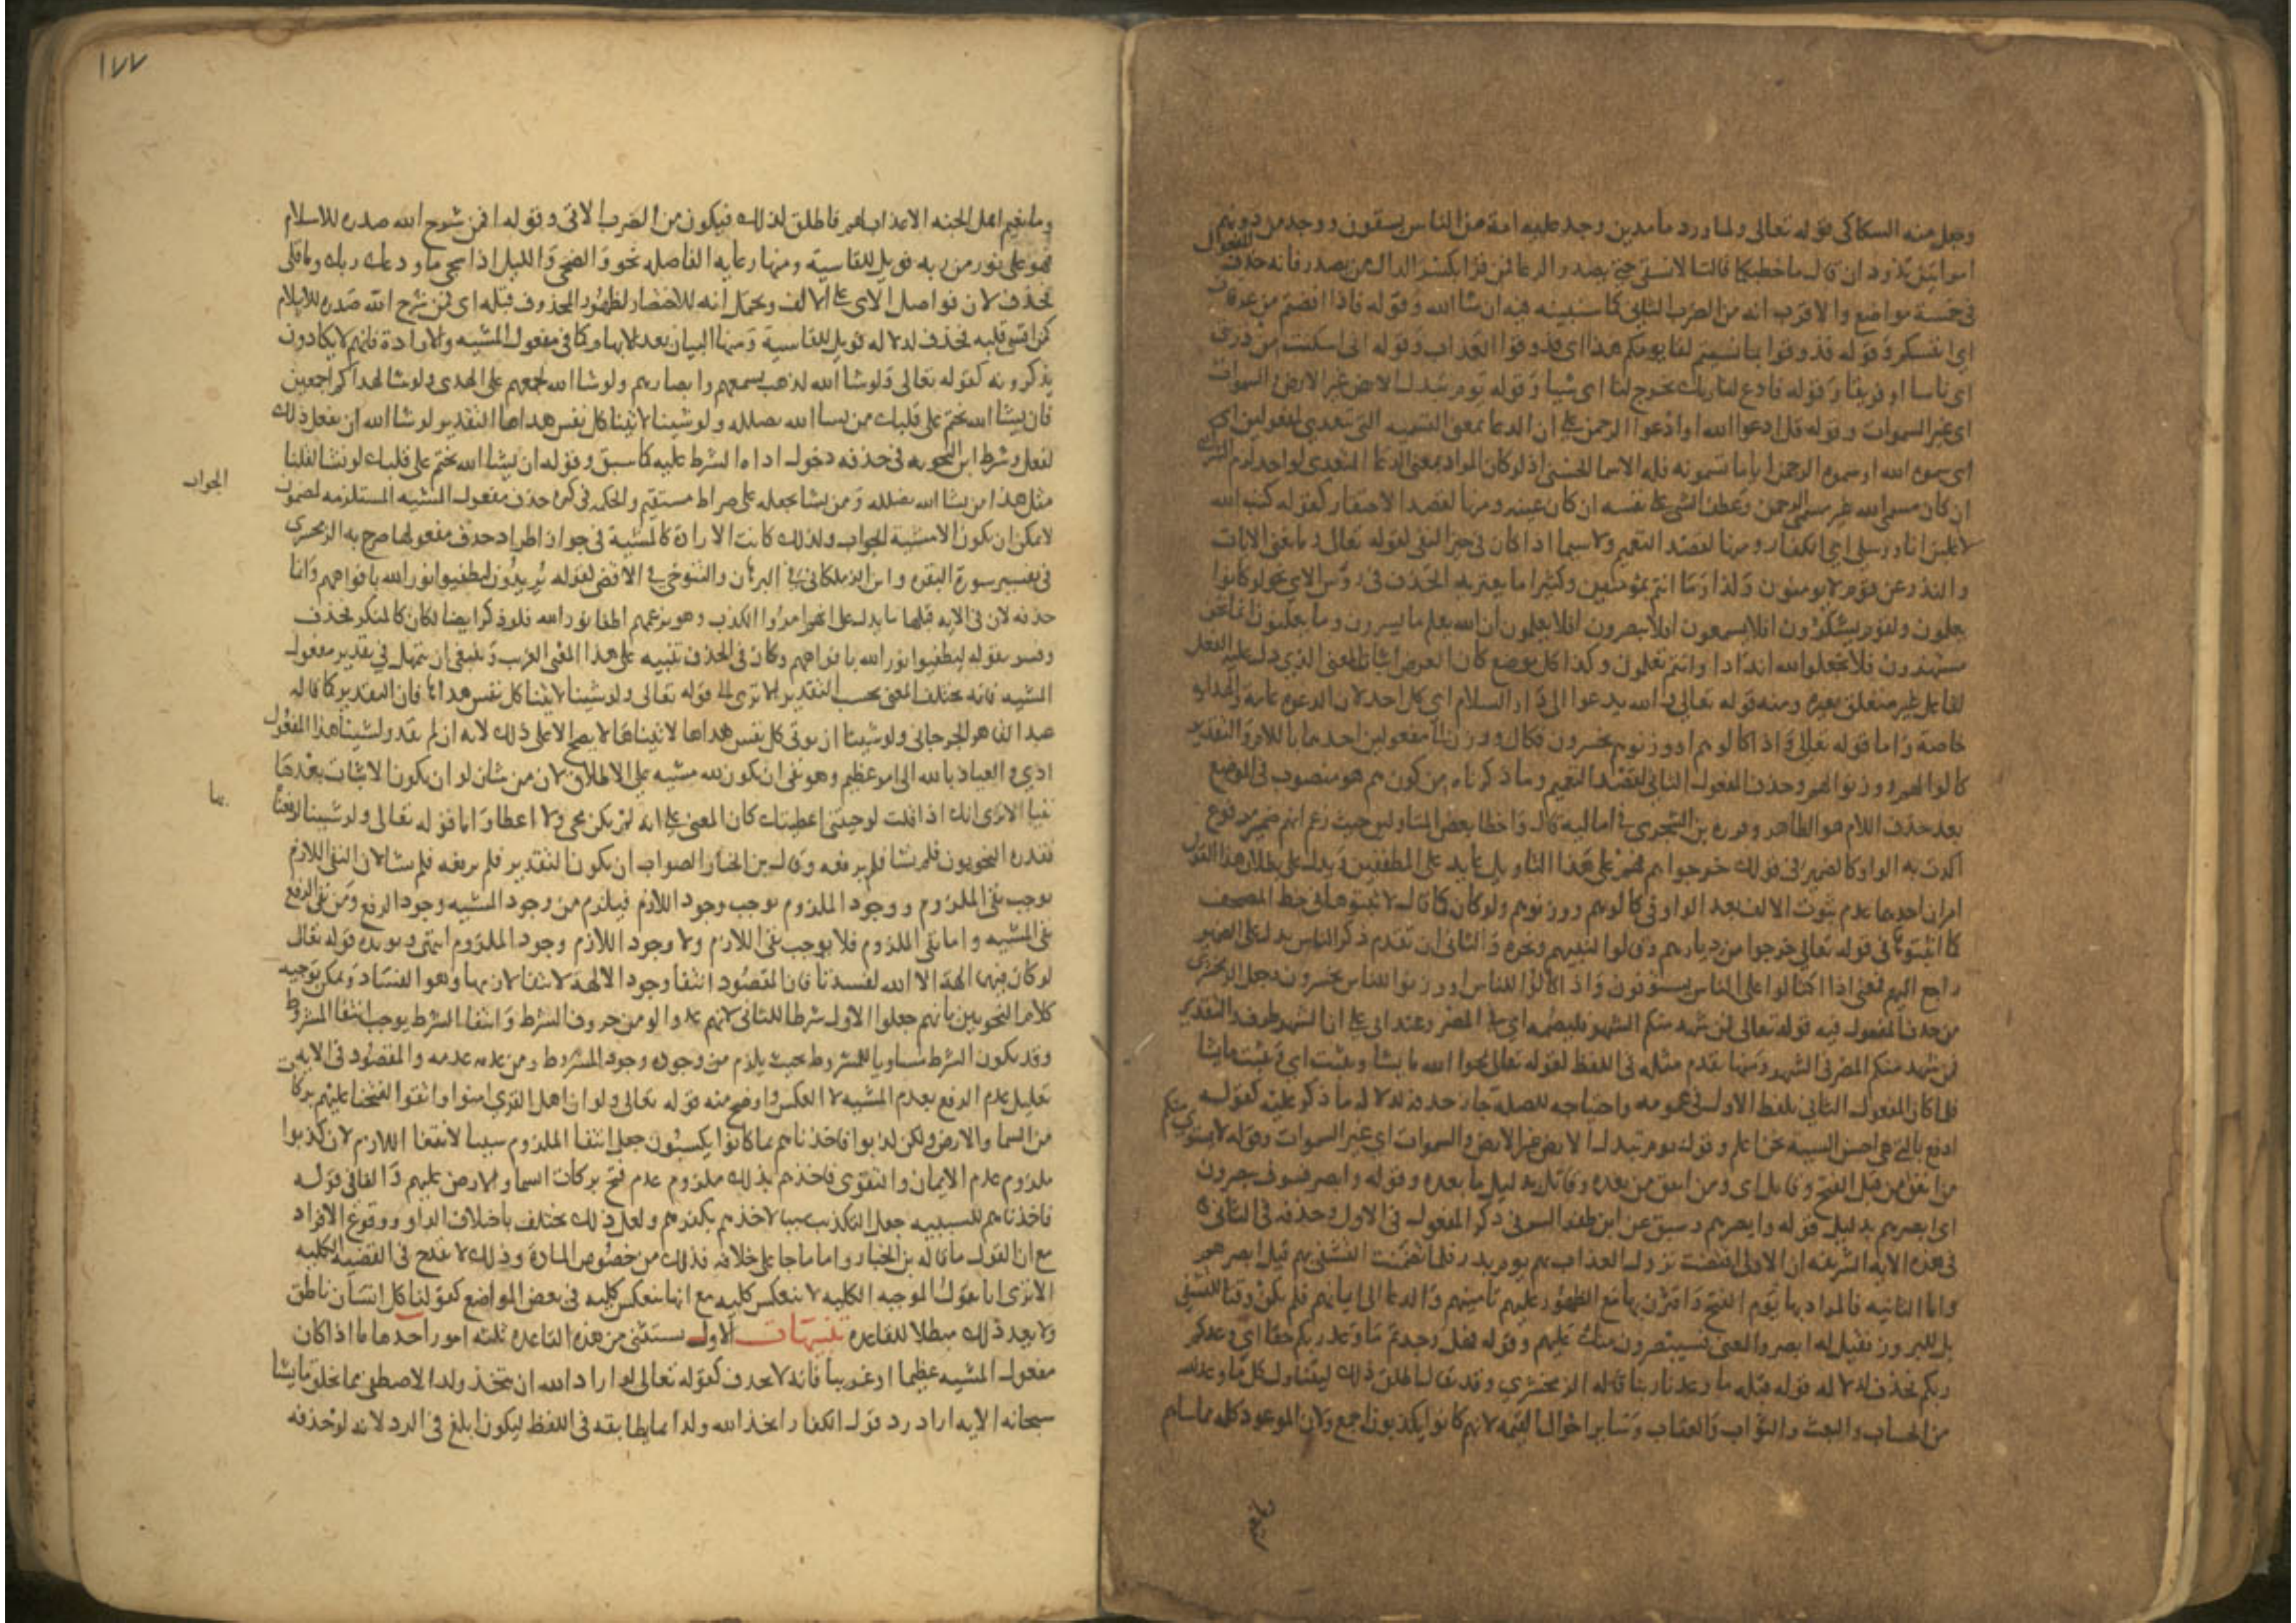 وجعل منه السكاكي قوله تعالى ولما ورد ما مدين وجد عليه امة من الناس يسقون ووجد من دونهم
امراتين تذودان قال ما خطبكما قالتا لا نسقي حتى يصدر الرعا فمن قرا بكسر الدال من يصدر فانه حذف المفعول
في خمسة مواضع والاقرب انه من الضرب الثاني كما سنبينه فيه ان شا الله وقوله فاذا افضتم من عرفات
اي انفسكم وقوله فذوقوا بما نسيتم لقا يومكم هذا اي فذوقوا العذاب وقوله اني اسكنت من ذريتي
اي ناسا او فريقا وقوله فادع لنا ربك يخرج لنا اي شيا وقوله يوم تبدل الارض غير الارض والسموات
اي غير السموات وقوله قل ادعوا الله او ادعوا الرحمن على ان الدعا بمعنى التسمية التي تتعدى لمفعولين اي
اي سموه الله او سموه الرحمن ايا ما تسمونه فله الاسما الحسنى اذ لو كان المراد بمعنى الدعا المتعدي لواحد لزم الشرك
ان كان مسمى الله غير مسمى الرحمن وعطف الشي على نفسه ان كان عينه ومنها لقصد الاحتقار كقوله كتب الله
لاغلبن انا ورسلي اي الكفار ومنها لقصد التعميم ولا سيما اذا كان في حيز النفي كقوله تعالى وما تغني الايات
والنذر عن قوم لا يومنون وكذا وما انتم بمومنين وكثيرا ما يعتريه الحذف في روس الاي نحو لو كانوا
يعلمون ولقوم يشكرون افلا يسمعون افلا يبصرون افلا يعلمون ان الله يعلم ما يسرون وما يعلنون انما نحن
مستهزون فلا تجعلوا لله اندادا وانتم تعلمون وكذا كل موضع كان الغرض اثبات المعنى الذي دل عليه الفعل
لفاعل غير متعلق بغيره ومنه قوله تعالى والله يدعوا الى دار السلام اي كل احد لان الدعوة عامة والهداية
خاصة واما قوله تعالى واذا كالوهم او وزنوهم يخسرون فكال ووزن الى مفعولين احدهما باللام والتقدير
كالوا لهم ووزنوا لهم وحذف المفعول الثاني لقصد التعميم وما ذكرناه من كون هم هو منصوب في الموضع
بعد حذف اللام هو الظاهر وقرره بن الشجري في اماليه قال واخطا بعض المتاولين حيث زعم انهم ضمير مرفوع
اكدت به الواو كالضمير في قولك خرجوا هم فهم على هذا التاويل عايد على المطففين ويدل على بطلان هذا القول
امران احدهما عدم ثبوت الالف بعد الواو في كالوهم ووزنوهم ولو كان كما قال لاثبتوها في خط المصحف
كما اثبتوها في قوله تعالى خرجوا من ديارهم وقالوا لنبيهم ونحوه والثاني ان تقدم ذكر الناس يدل على الضمير
راجع اليهم فمعنى اذا اكتالوا على الناس يستوفون واذا كالوا للناس او وزنوا للناس يخسرون وجعل الزمخشري
من حذف المفعول فيه قوله تعالى فمن شهد منكم الشهر فليصمه اي في المصر وعند ابي علي ان الشهر ظرف والتقدير
فمن شهد منكم المصر في الشهر ومنها تقدم مثله في اللفظ كقوله تعالى يمحوا الله ما يشا ويثبت اي ويثبت ما يشا
فلما كان المفعول الثاني بلفظ الاول في عمومه واحتياجه للصلة جاز حذفه لدلالة ما ذكر عليه كقوله
ادفع بالتي هي احسن السيية نحن اعلم وقوله يوم تبدل الارض غير الارض والسموات اي غير السموات وقوله لا يستوي منكم
من انفق من قبل الفتح وقاتل اي ومن انفق من بعده وقاتل بدليل ما بعده وقوله وابصر فسوف يبصرون
اي ابصرهم بدليل قوله وابصرهم وسبق عن ابن ظفر السر في ذكر المفعول في الاول وحذفه في الثاني
في هذه الاية الشريفة ان الاولى اقتضت نزول العذاب بهم يوم بدر فلما تضمنت التشفي بهم قيل ابصرهم
واما الثانية فالمراد بها يوم الفتح واقترن بها مع الظهور عليهم تامينهم والدعا الى ايمانهم فلم يكن وقتا للتشفي
بل للبروز فقيل له ابصر والمعنى فسيبصرون منك عليهم وقوله فهل وجدتم ما وعد ربكم حقا اي وعدكم
ربكم فحذف لدلالة قوله قبله ما وعدنا ربنا قاله الزمخشري وقد يقال اطلق ذلك ليتناول كل ما وعد الله
من الحساب والبعث والثواب والعقاب وساير احوال القيمة لانهم كانوا يكذبون اجمع ولان الموعود كله مما ساهم
وما نعيم اهل الجنة الا عذاب لهم فاطلق لذلك فيكون من الضرب الاتي وقوله افمن شرح الله صدره للاسلام
فهو على نور من ربه فويل للقاسية ومنها رعاية الفاصلة نحو والضحى والليل اذا سجى ما ودعك ربك وما قلى
فحذف لان فواصل الاي على الالف ويحتمل انه للاختصار لظهور المحذوف قبله اي فمن شرح الله صدره للاسلام
كمن اقسى قلبه فحذف لدلالة فويل للقاسية ومنها البيان بعد الابهام كما في مفعول المشية والارادة فانهم لا يكادون
يذكرونه كقوله تعالى ولو شا الله لذهب بسمعهم وابصارهم ولو شا الله لجمعهم على الهدى ولو شا لهداكم اجمعين
فان يشا الله يختم على قلبك من يشا الله يضلله ولو شينا لاتينا كل نفس هداها التقدير لو شا الله ان يفعل ذلك
لفعل وشرط ابن النحوية في حذفه دخول اداة الشرط عليه كما سبق وقوله ان يشا الله يختم على قلبك لو نشا لقلنا
مثل هذا من يشا الله يضلله ومن يشا يجعله على صراط مستقيم والحكمة في كثرة حذف مفعول المشية المستلزمة لمضمون الجواب
لا يمكن ان يكون الا مشية الجواب ولذلك كانت الارادة كالمشية في جواز اطراد حذف مفعولها صرح به الزمخشري
في تفسير سورة البقره وابن الزملكاني في البرهان والتنوخي في الاقصى كقوله يريدون ليطفيوا نور الله بافواههم وانما
حذفه لان في الاية قبلها ما يدل على انهم امروا الكذب وهو بزعمهم اطفا نور الله فلو ذكر ايضا لكان كالمتكرر فحذف
وفسر بقوله ليطفيوا نور الله بافواههم وكان في الحذف تنبيه على هذا المعنى الغريب وينبغي ان يتمهل في تقدير مفعول
المشية فانه يختلف المعنى بحسب التقدير الا ترى الى قوله تعالى ولو شينا لاتينا كل نفس هداها فان التقدير كما قاله
عبد القاهر الجرجاني ولو شينا ان نوتي كل نفس هداها لاتيناها لا يصح الا على ذلك لانه ان لم يقدر ولشينا هذا المفعول
ادى والعياذ بالله الى امر عظيم وهو نفي ان يكون لله مشية على الاطلاق لان من شان لو ان يكون الاثبات بعدها
نفيا الا ترى انك اذا قلت لو جيتني اعطيتك كان المعنى على انه لم يكن مجي ولا اعطا واما قوله تعالى ولو شينا لرفعناه بها
فقدره النحويون فلم نشا فلم نرفعه وقال بن الخباز الصواب ان يكون التقدير فلم نرفعه فلم نشا لان نفي اللازم
يوجب نفي الملزوم ووجود الملزوم يوجب وجود اللازم فيلزم من وجود المشية وجود الرفع ومن نفي الرفع
نفي المشية واما نفي الملزوم فلا يوجب نفي اللازم ولا وجود اللازم وجود الملزوم انتهى ويويده قوله تعالى
لو كان فيهما الهة الا الله لفسدتا فان المقصود انتفا وجود الالهة لانتفا لازمها وهو الفساد ويمكن توجيه
كلام النحويين بانهم جعلوا الاول شرطا للثاني لانهم عدوا لو من حروف الشرط وانتفا الشرط يوجب انتفا المشروط
وقد يكون الشرط مساويا للمشروط بحيث يلزم من وجوده وجود المشروط ومن عدمه عدمه والمقصود في الاية
تعليل عدم الرفع بعدم المشية لا العكس واوضح منه قوله تعالى ولو ان اهل القرى امنوا واتقوا لفتحنا عليهم بركات
من السما والارض ولكن كذبوا فاخذناهم بما كانوا يكسبون جعل انتفا الملزوم سببا لانتفا اللازم لان كذبوا
ملزوم عدم الايمان والتقوى فاخذهم بذلك ملزوم عدم فتح بركات السما والارض عليهم والفا في قوله
فاخذناهم للسببية جعل التكذيب سببا لاخذهم بكفرهم ولعل ذلك يختلف باختلاف المواد ووقوع الافراد
مع ان القول ما قاله بن الخباز واما ما جا على خلافه فذلك من خصوص المادة وذلك لا يقدح في القضية الكلية
الا ترى انا نقول الموجبة الكلية لا تنعكس كلية مع انها تنعكس كلية في بعض المواضع كقولنا كل انسان ناطق
ولا يعد ذلك مبطلا للقاعدة تنبيهات الاول يستثنى من هذه القاعدة ثلثة امور احدها ما اذا كان
مفعول المشية عظيما او غريبا فانه لا يحذف كقوله تعالى لو اراد الله ان يتخذ ولدا لاصطفى مما يخلق ما يشا
سبحانه الاية اراد رد قول الكفار اتخذ الله ولدا بما يطابقه في اللفظ ليكون ابلغ في الرد لانه لو حذفه
١٧٧